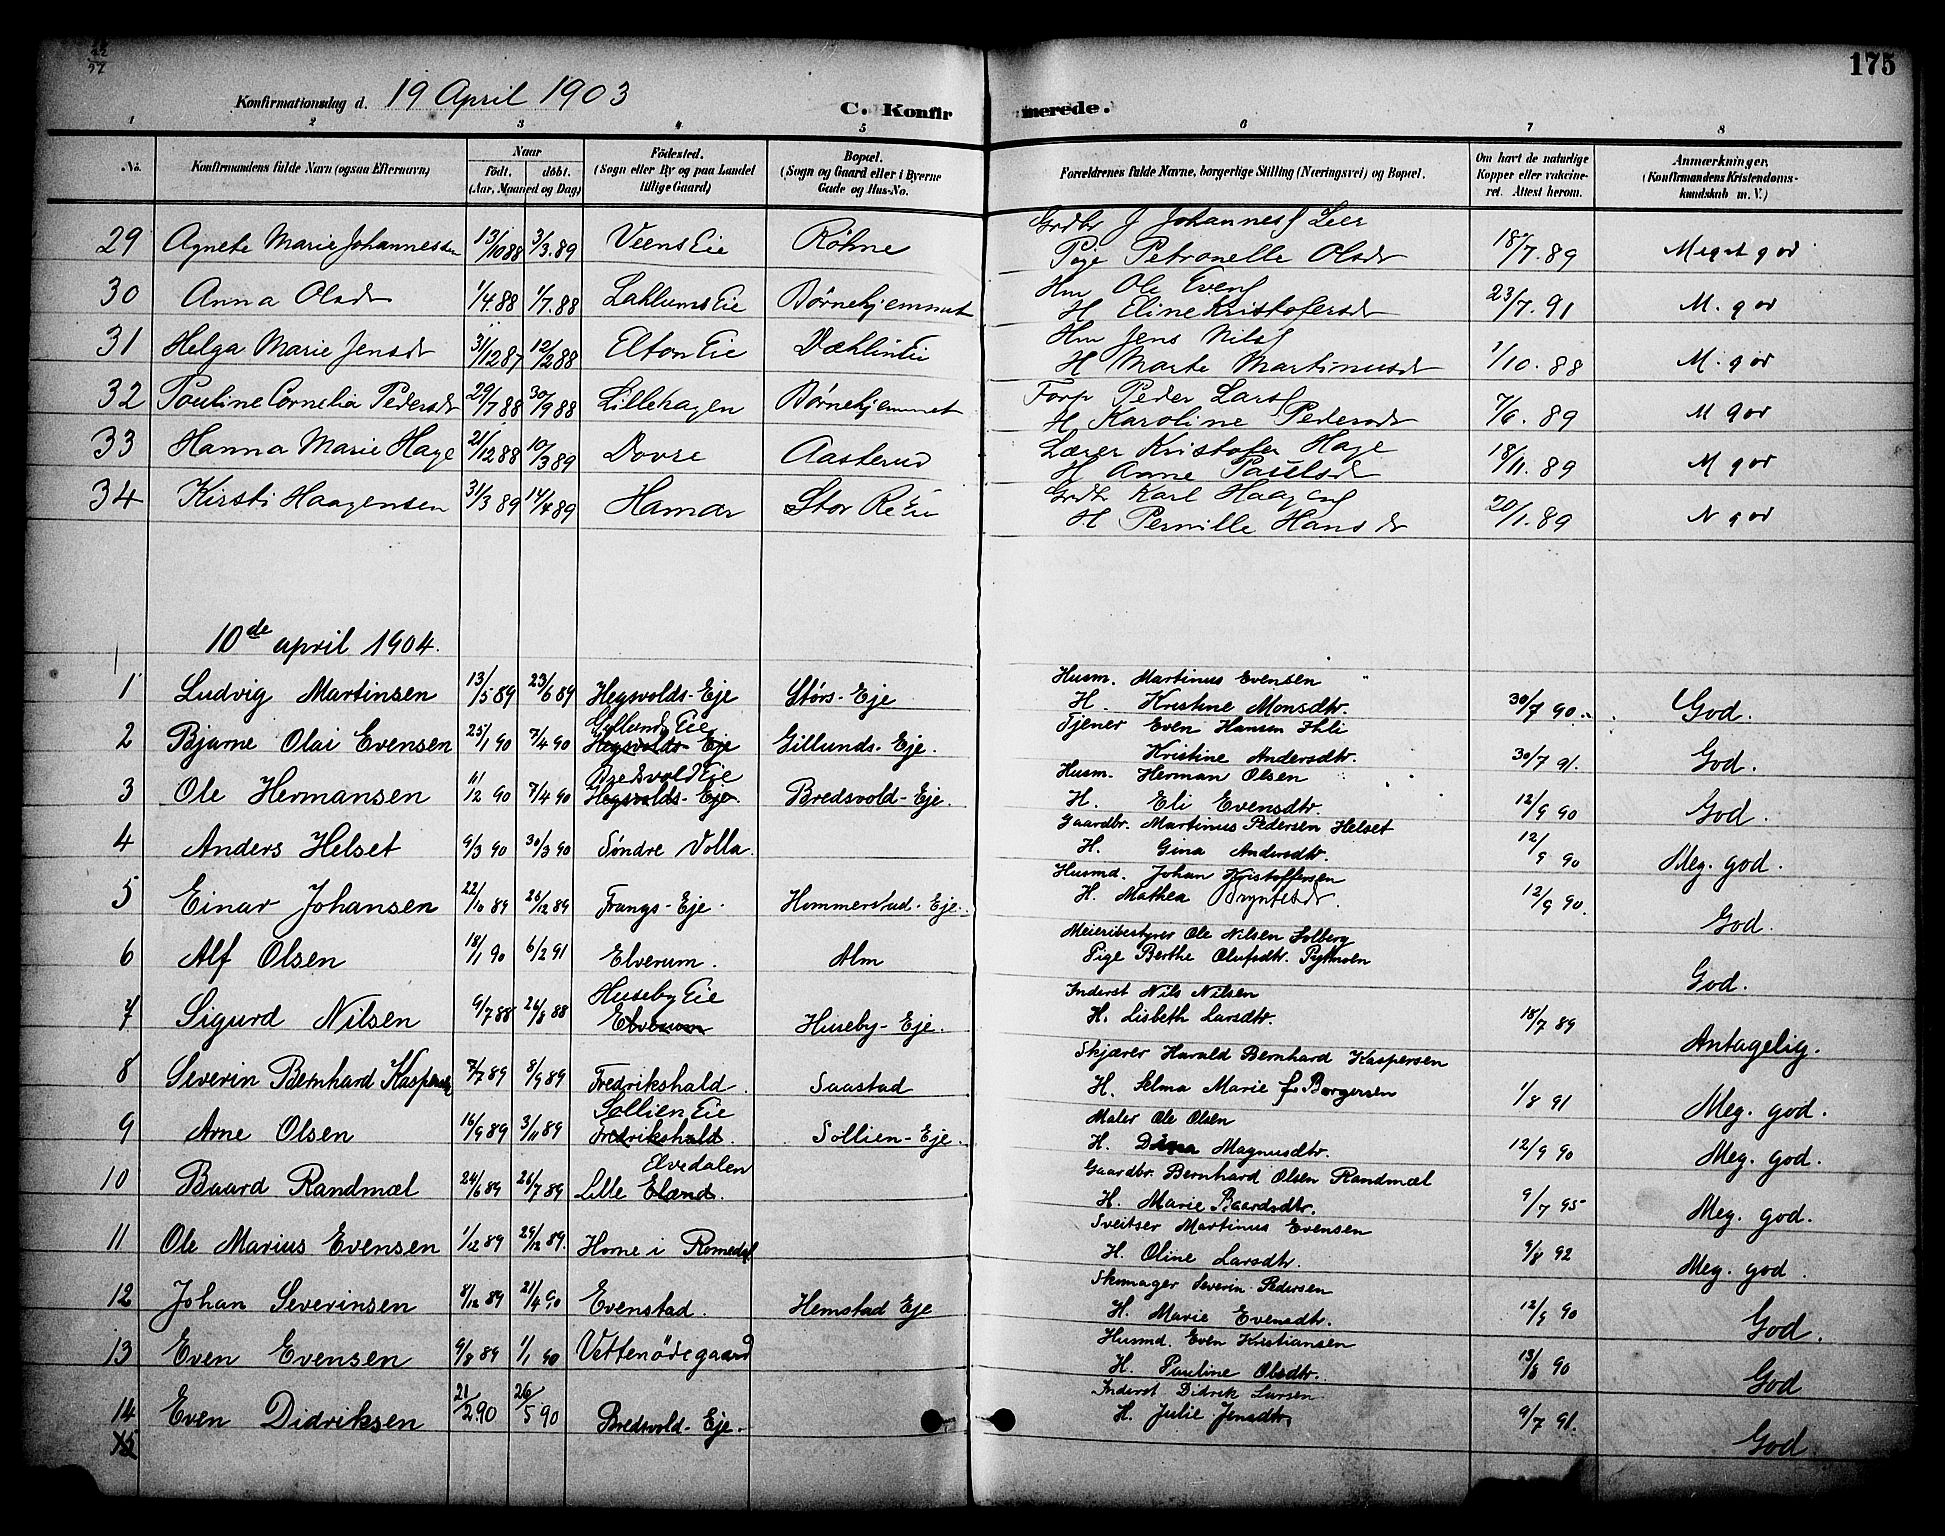 22/97
175
Konfirmationsdag d. 19 April 1903
C. Konfirmerede.
1 2 3 4 5 6 7 8
No. Konfirmandens fulde Navn (ogsaa Efternavn) Naar födt. döbt. (Aar, Maaned og Dag) Födested. (Sogn eller By og paa Landet tillige Gaard) Bopæl. (Sogn og Gaard eller i Byerne Gade og Hus-No. Forældrenes fulde Navne, borgerlige Stilling (Næringsvei) og Bopæl. Om havt de naturlige Kopper eller vakcineret. Attest herom. Anmærkninger. (Konfirmandens Kristendomskundskab m. V.)
29 Agnete Marie Johannessen 13/10 88 3/3.89 Veens Eie Røhne Grdbr J Johannes Leer
Pige Petronelle Olsdr 18/7.89 Meget god
30 Anna Olsdr 1/4.88 1/7.88 Lahlums Eie Børnehjemmet Hm Ole Evens
H Eline Kristofersdr 23/7.91 M. god
31 Helga Marie Jensdr 31/12 87 12/2 88 Elton Eie Dæhlin Eie Hm Jens Nils
H Marte Martinusdr 1/10.88 M. god
32 Pauline Cornelia Pedersdr 29/7 88 30/9 88 Lillehagen Børnehjemmet Forp Peder Lars
H Karoline Pedersdr 7/6.89 M god
33 Hanna Marie Hage 21/12 88 10/3 89 Dovre Aasterud Lærer Kristofer Hage
H Anne Paulsdr 18/11.89 M god
34 Kirsti Haagensen 31/3 89 14/4 89 Hamar Stor Re Eie Grdbr Karl Haagens
H Pernille Hansdr 20/1.89 N god
10de april 1904.
1 Ludvig Martinsen 13/5 89 23/6 89 Hegsvolds-Eje Störs-Eje Husm. Martinus Evensen
H. Kristine Monsdtr. 30/7 90. God.
2 Bjarne Olai Evensen 25/1 90 7/4 90 Gillunds Eie
Hegsvolds-Eje Gillunds-Eje. Tjener Even Hansen Ihli
Kristine Andersdtr. 30/7 91. God.
3 Ole Hermansen 11/12 90 7/4 90 Bredsvold Eie
Hegsvolds-Eje Bredsvold-Eje. Husm. Herman Olsen
H. Eli Evensdtr. 12/9 90 God.
4 Anders Helset 9/3 90 30/3 90 Söndre Volla. Gaardbr. Martinus Pedersen Helset
H. Gina Andersdtr. 12/9 90 Meg. god.
5 Einar Johansen 22/10 89 26/12 89 Frangs-Eje. Hommerstad-Eje. Husmd. Johan Kristoffersen
H. Mathea Bryntesdr. 12/9 90. God.
6 Alf Olsen 18/1 90 6/2 91 Elverum. Alm Meieribestyrer Ole Nilsen Solberg
Pige Berthe Olufsdtr. God.
7 Sigurd Nilsen 9/7 88 26/8 88 Huseby Eie
Elverum Huseby-Eje. Inderst Nils Nilsen
H. Lisbeth Larsdtr. 18/7 89 Antagelig.
8 Severin Bernhard Kaspersen 7/7 89 8/9 89 Fredrikshald. Saastad Skjærer Harald Bernhard Kaspersen
H. Selma Marie f. Borgersen 1/8 91 Meg. god.
9 Arne Olsen 16/9 89 3/11 89 Sollien Eie
Fredrikshald. Sollien-Eje. Maler Ole Olsen
H. Dina Magnusdtr. 12/9 90 Meg. god.
10 Baard Randmæl 24/6 89 26/7 89 Elvedalen
Lille Elænd. Gaardbr. Bernhard Olsen Randmæl
H. Marie Baardsdtr. 9/7 95 Meg. god.
11 Ole Marius Evensen 1/12 89 29/12 89. Horne i Romedal Sveitser Martinus Evensen
H. Oline Larsdtr. 9/8 92 Meg. god.
12 Johan Severinsen 8/12 89 21/4 90 Evenstad. Hemstad Eje Skomager Severin Pedersen
H. Marie Evensdtr. 12/9 90 God.
13 Even Evensen 9/8 89 1/1 90 Vettenödegaard Husmd. Even Kristiansen
H. Pauline Olsdtr. 13/8 90 God
14 Even Didriksen 21/2 90 26/5 90 Bredsvold-Eje. Inderst Didrik Larsen
H. Julie Jensdtr. 9/7 91. God
15